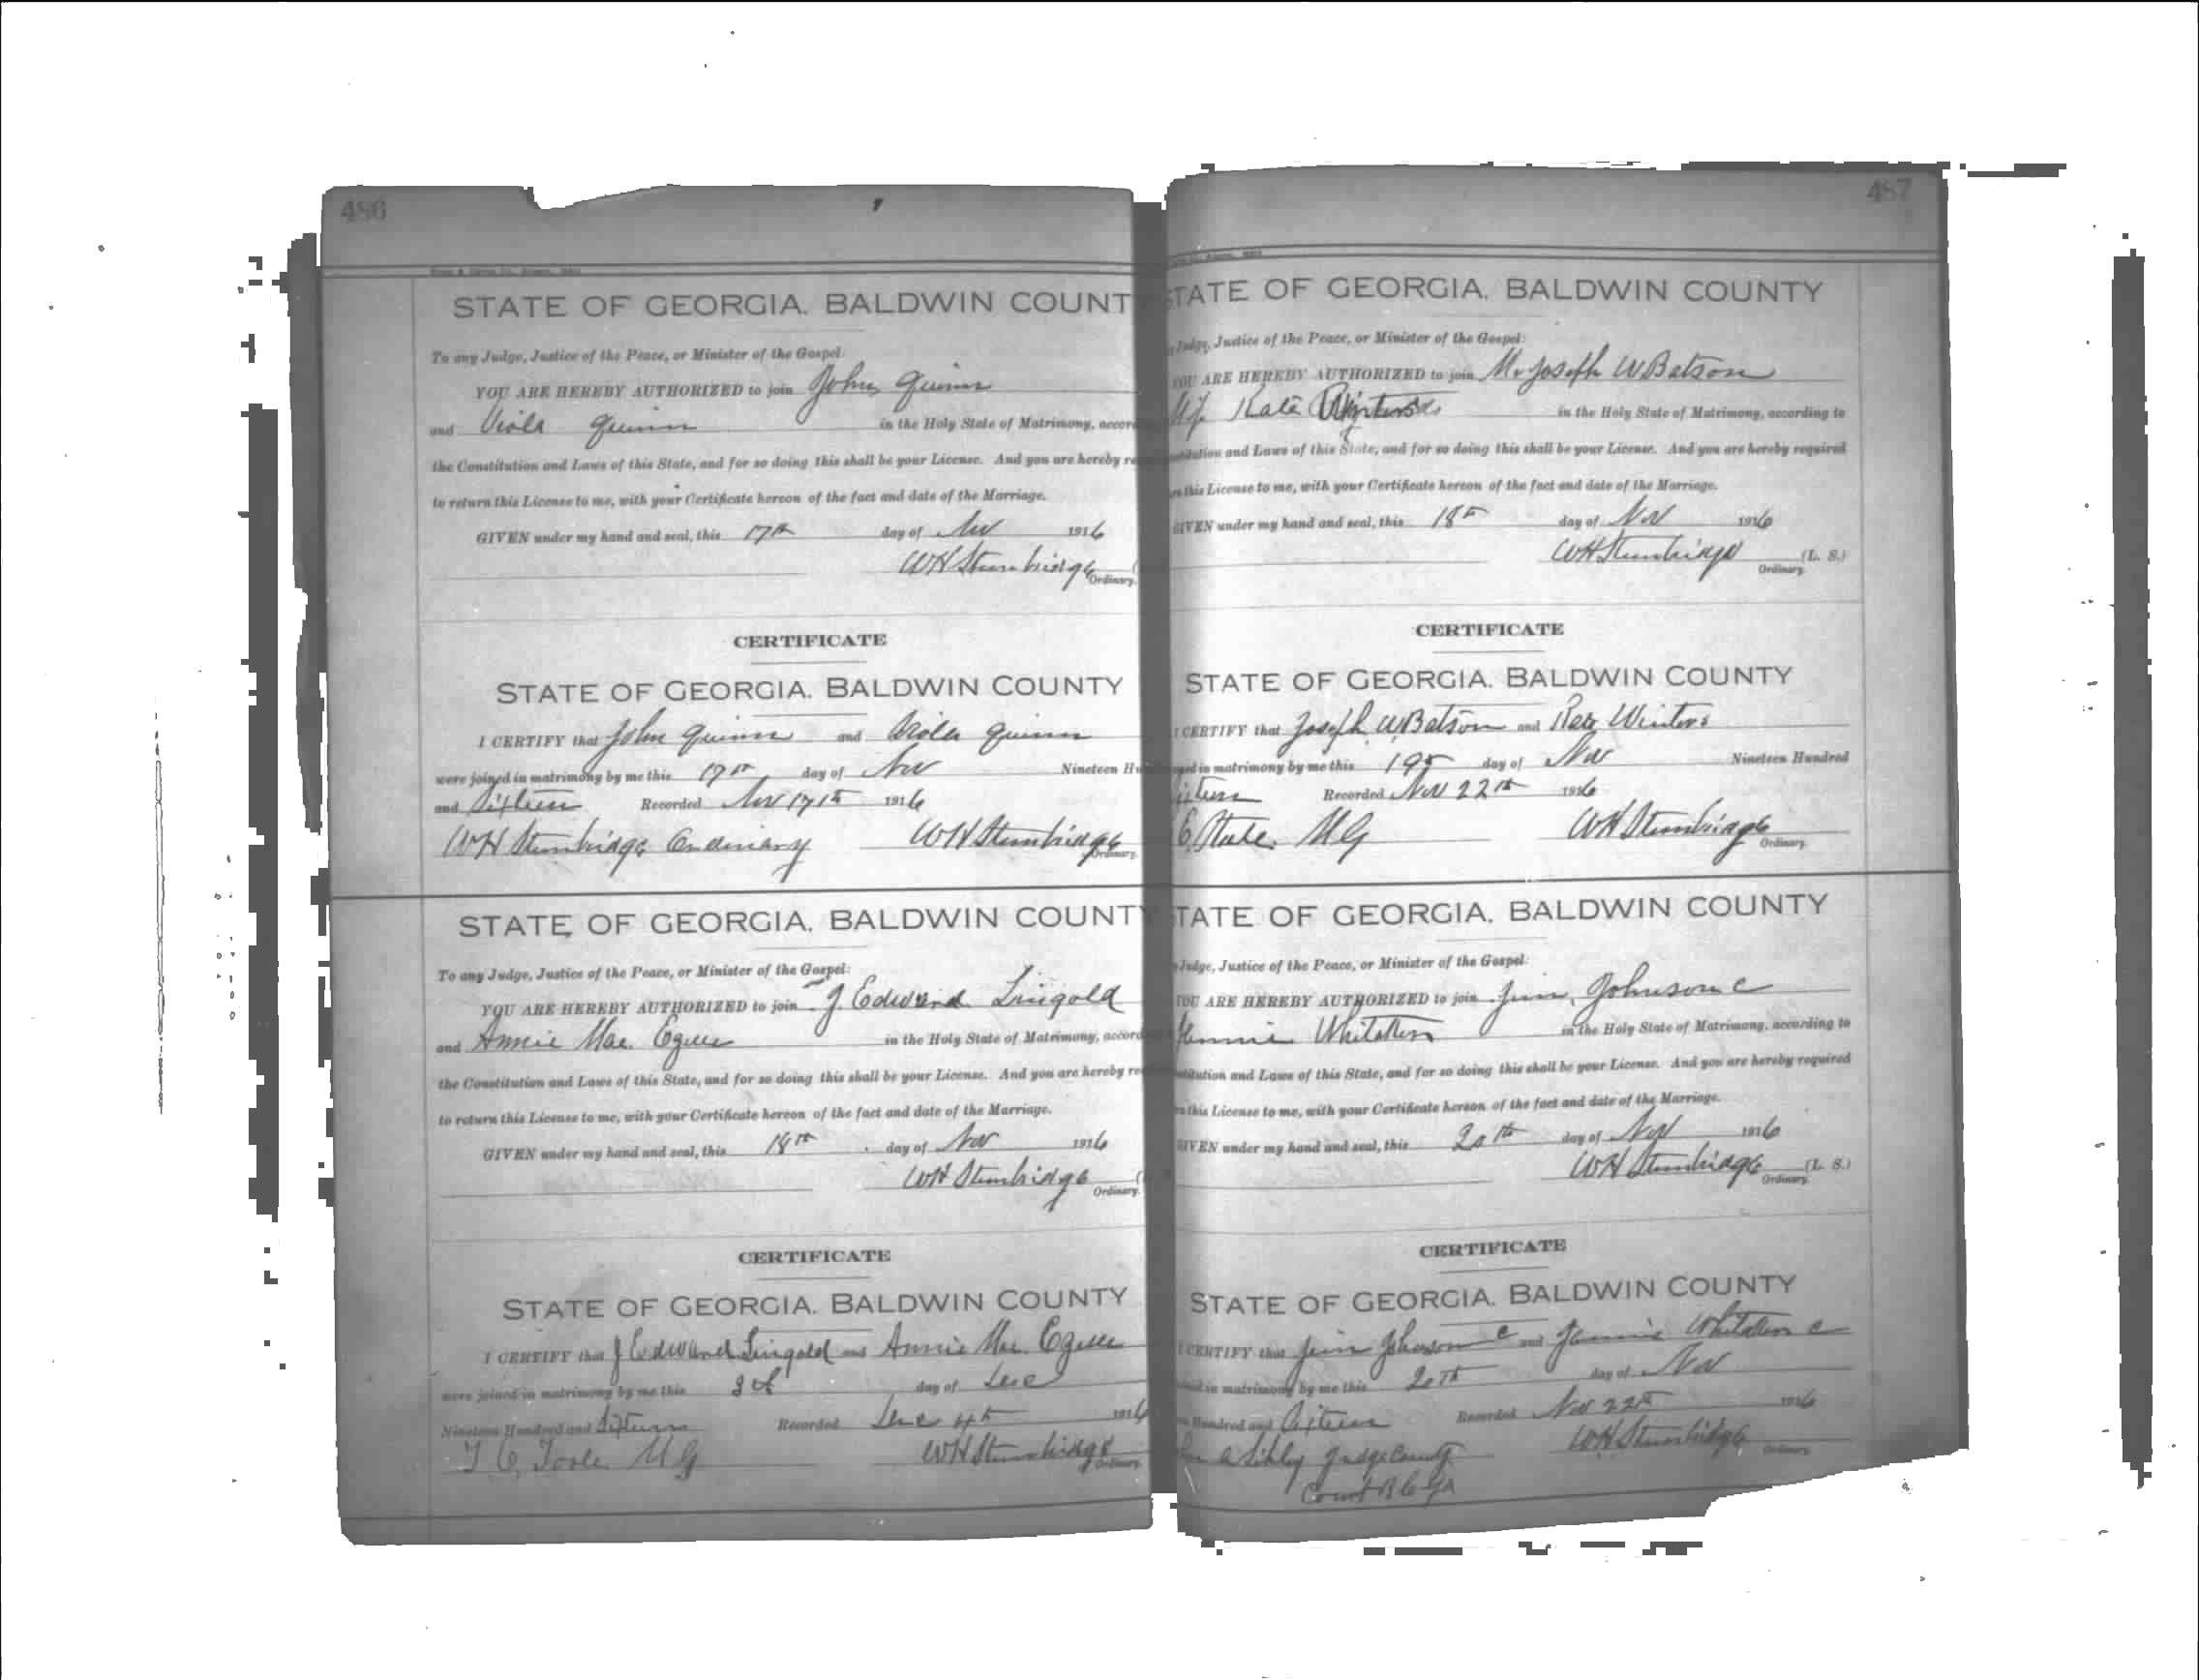 486
STATE OF GEORGIA. BALDWIN COUNT
To any Judge, Justice of the Peace, or Minister of the Gospel:
YOU ARE HEREBY AUTHORIZED to join John Quinn
and Viola Quinn in the Holy State of Matrimony, accor
the Constitution and Laws of this State, and for so doing this shall be your License. And you are hereby re
to return this License to me, with your Certificate hereon of the fact and date of the Marriage.
GIVEN under my hand and seal, this 17th day of Nov 1916
WH Stembridge
Ordinary.
CERTIFICATE
STATE OF GEORGIA. BALDWIN COUNTY
I CERTIFY that John Quinn and Viola Quinn
were joined in matrimony by me this 17th day of Nov Nineteen Hu
and Sixteen Recorded Nov 17th 1916
WH Stembridge Ordinary WH Stembridge
Ordinary.
STATE OF GEORGIA. BALDWIN COUNTY
To any Judge, Justice of the Peace, or Minister of the Gospel:
YOU ARE HEREBY AUTHORIZED to join J. Edward Lingold
and Annie Mae Ezell in the Holy State of Matrimony, accord
the Constitution and Laws of this State, and for so doing this shall be your License. And you are hereby re
to return this License to me, with your Certificate hereon of the fact and date of the Marriage.
GIVEN under my hand and seal, this 18th day of Nov 1916
WH Stembridge
Ordinary.
CERTIFICATE
STATE OF GEORGIA. BALDWIN COUNTY
I CERTIFY that J Edward Lingold and Annie Mae Ezell
were joined in matrimony by me this 3d day of Dec
Nineteen Hundred and Sixteen Recorded Dec 4th 1916
T C Toole M G WH Stembridge
Ordinary.
487
STATE OF GEORGIA. BALDWIN COUNTY
Judge, Justice of the Peace, or Minister of the Gospel:
YOU ARE HEREBY AUTHORIZED to join Mr Joseph W Batson
Kate Winters in the Holy State of Matrimony, according to
stitution and Laws of this State, and for so doing this shall be your License. And you are hereby required
rn this License to me, with your Certificate hereon of the fact and date of the Marriage.
GIVEN under my hand and seal, this 18th day of Nov 1916
WH Stembridge (L. S.)
Ordinary.
CERTIFICATE
STATE OF GEORGIA. BALDWIN COUNTY
I CERTIFY that Joseph W Batson and Kate Winters
ned in matrimony by me this 19th day of Nov Nineteen Hundred
ixteen Recorded Nov 22th 1916
M G WH Stembridge
Ordinary.
TATE OF GEORGIA. BALDWIN COUNTY
Judge, Justice of the Peace, or Minister of the Gospel:
YOU ARE HEREBY AUTHORIZED to join Jim Johnson c
Whitaker in the Holy State of Matrimony, according to
stitution and Laws of this State, and for so doing this shall be your License. And you are hereby required
rn this License to me, with your Certificate hereon of the fact and date of the Marriage.
GIVEN under my hand and seal, this 20th day of Nov 1916
WH Stembridge (L. S.)
Ordinary.
CERTIFICATE
STATE OF GEORGIA. BALDWIN COUNTY
I CERTIFY that Jim Johnson c and Whitaker c
ned in matrimony by me this 20th day of Nov
Hundred and Sixteen Recorded Nov 22th 1916
a Sibley Judge County WH Stembridge
Ordinary.
Court B C Ga